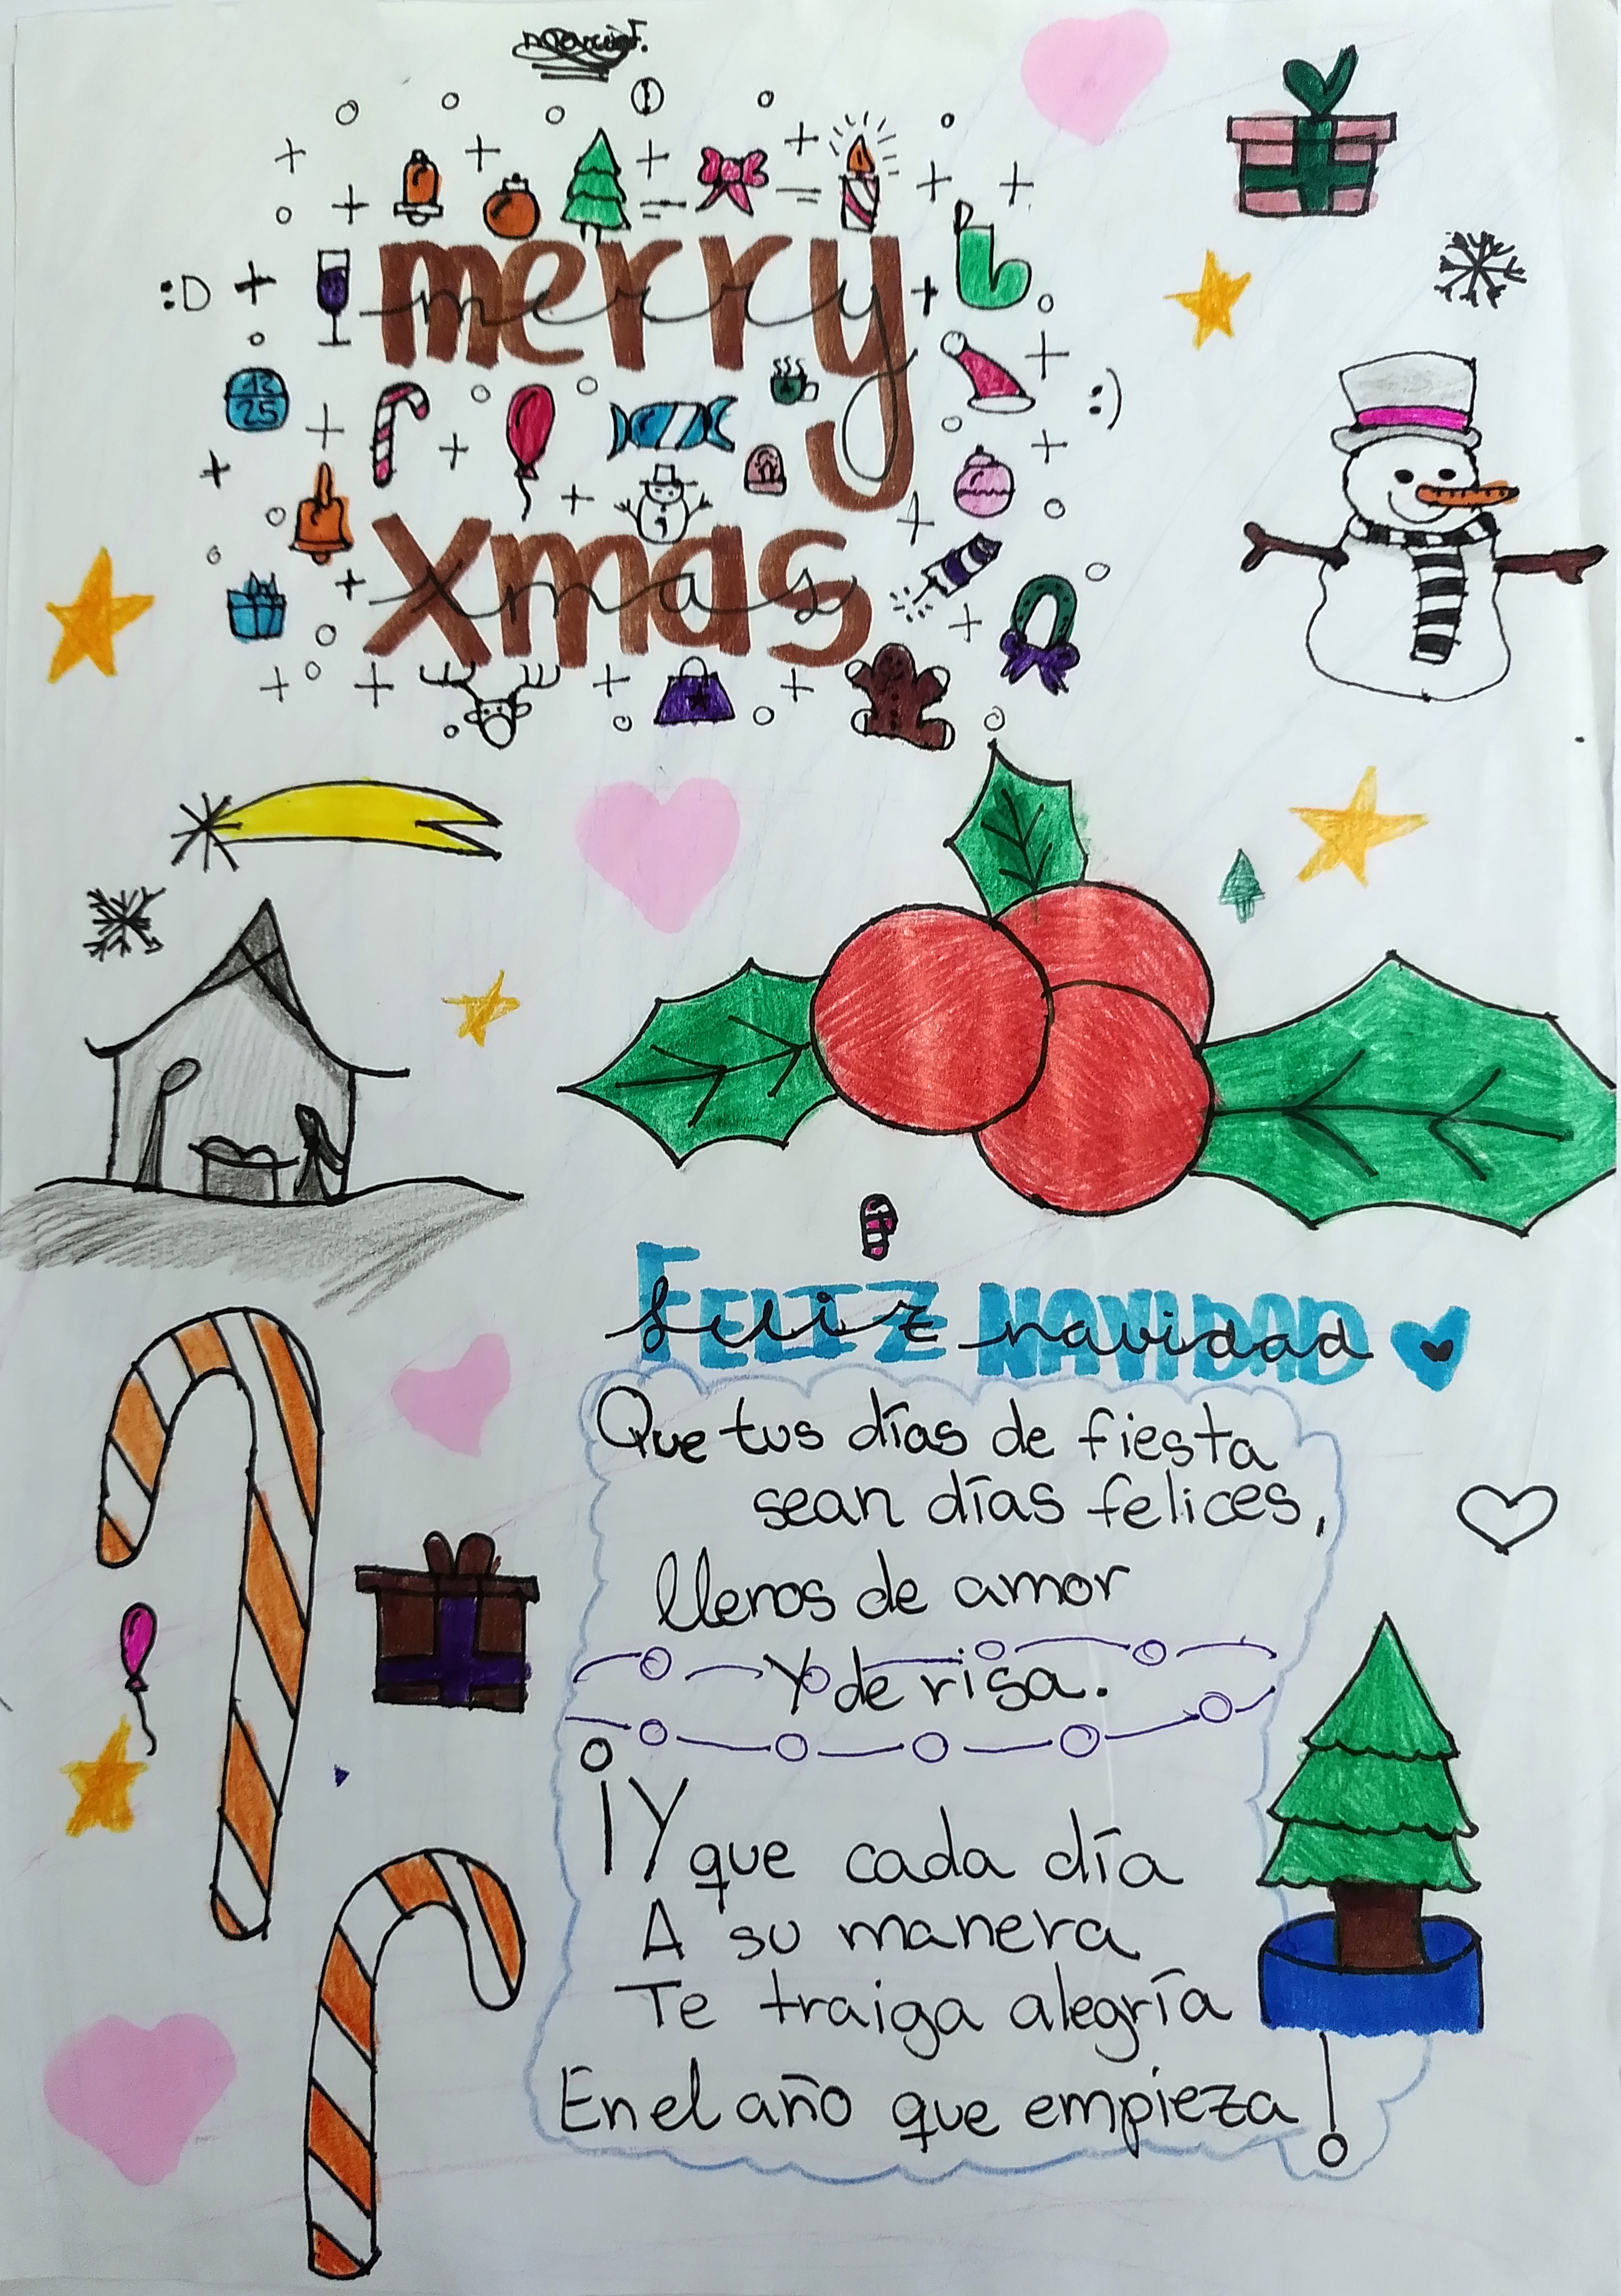 :D
merry
merry
12
25
:)
xmas
xmas
FELIZ NAVIDAD
feliz navidad
Que tus días de fiesta
sean días felices,
llenos de amor
Y de risa.
¡Y que cada día
A su manera
Te traiga alegría
En el año que empieza!